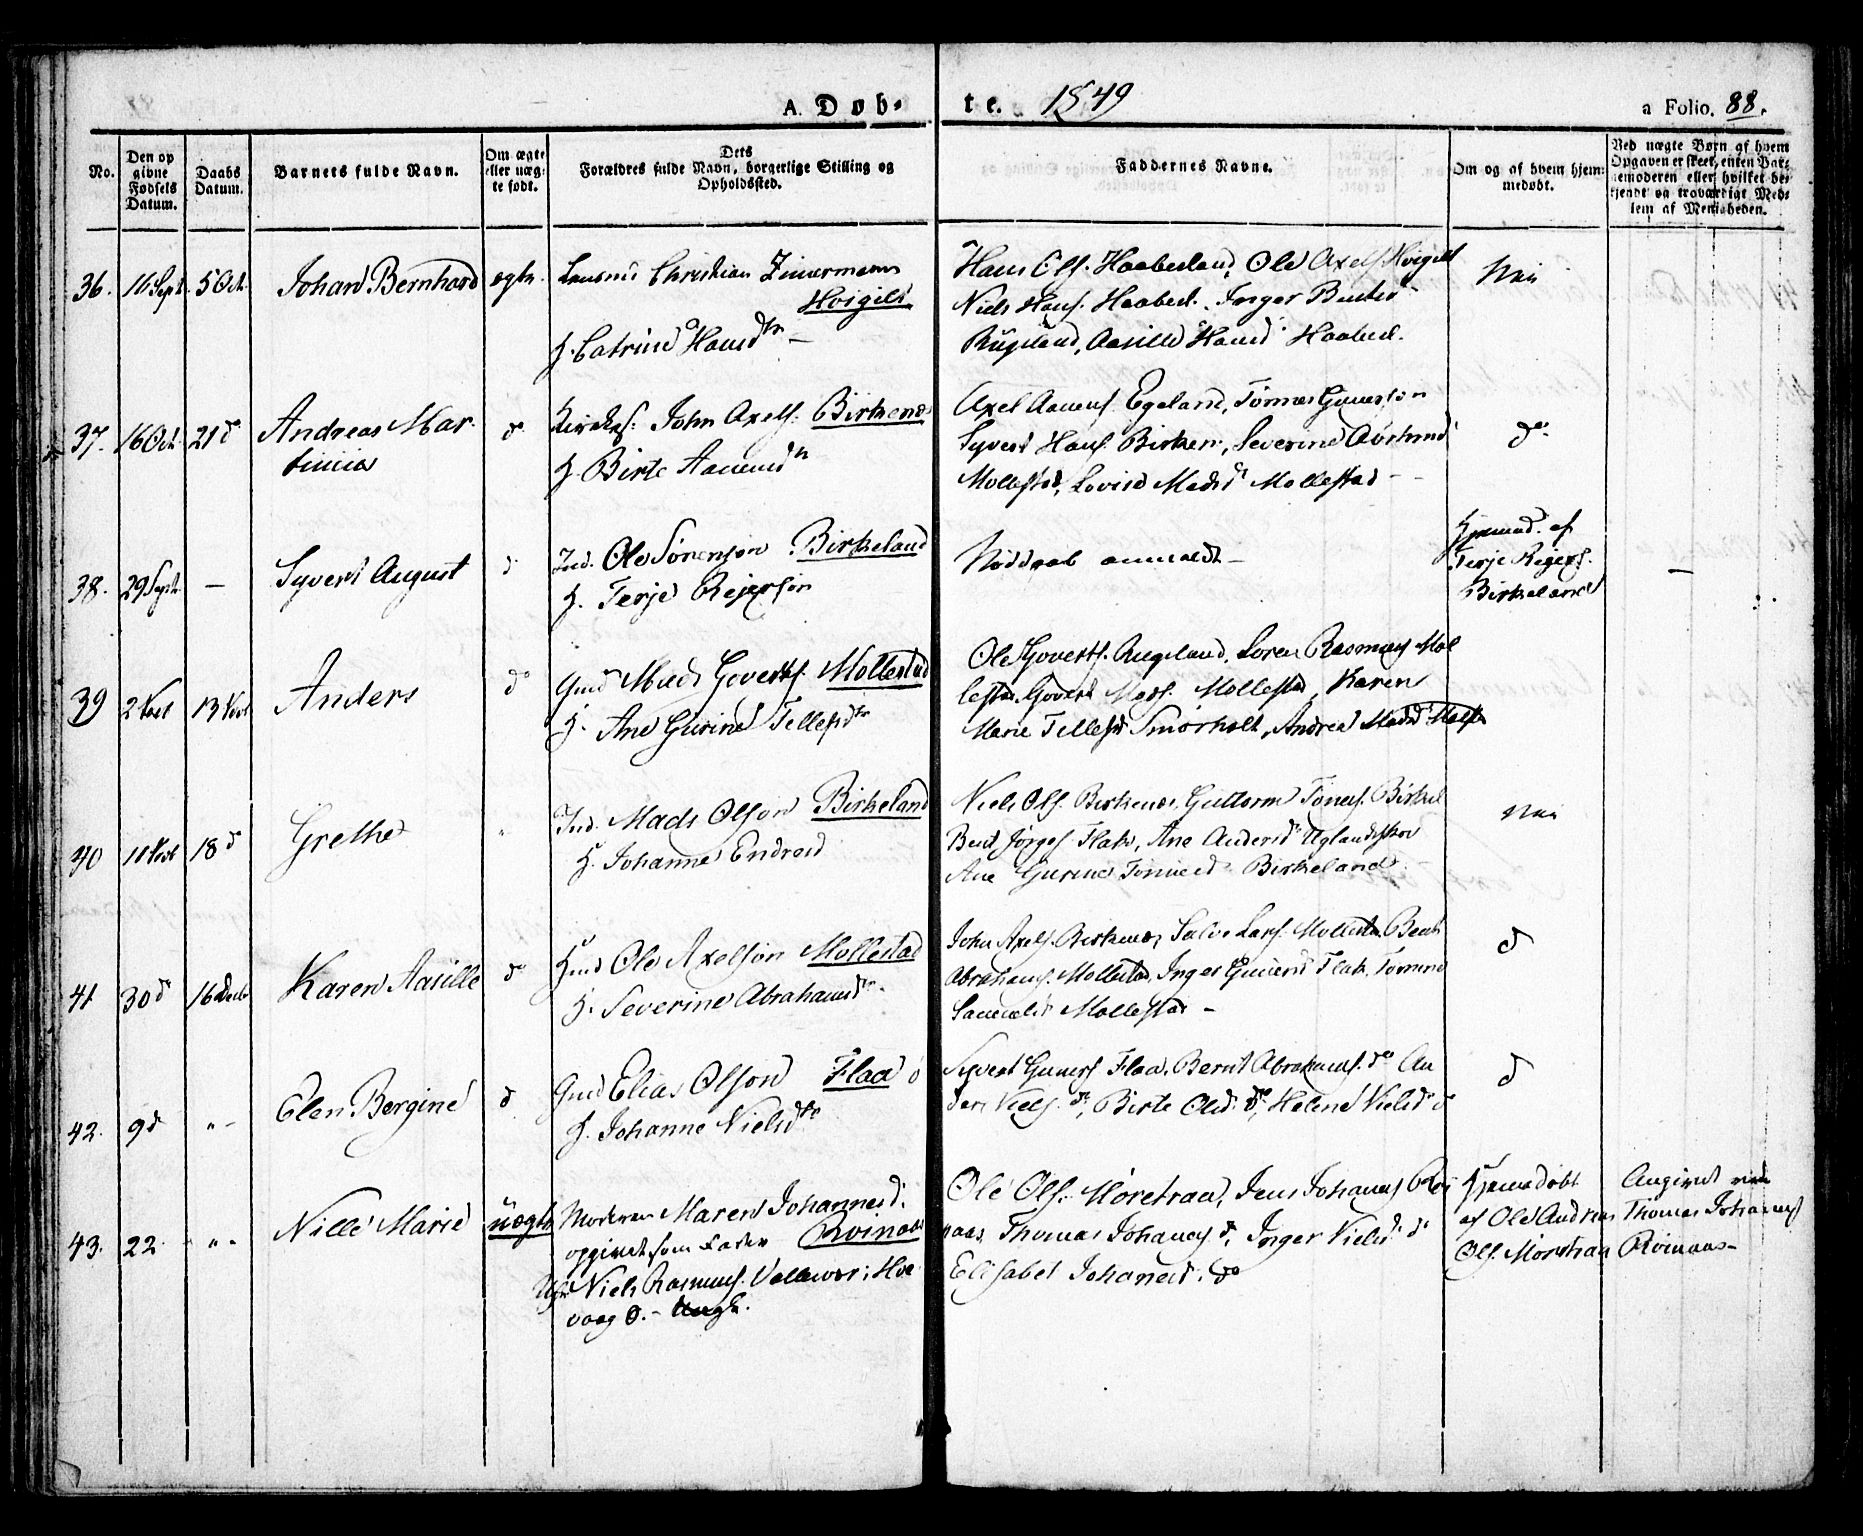 A. Døb-
te. 1849
a Folio. 88.
No.
Den op
givne
Fødsels
Datum.
Daabs
Datum.
Barnets fulde Navn.
Om ægte
eller uæg-
te født.
Dets
Forældres fulde Navn, borgerlige Stilling og
Opholdssted.
Faddernes Navne.
Om og af hvem hjem-
medøbt.
Ved uægte Børn af hvem
Opgaven er skeet, enten Bar-
nemoderen eller hvilket be-
kjendt og troværdigt Med-
lem af Menigheden.
36. 16 Sept. 5 Oct. Johan Bernhard ægte. Christian Zimermann
Hvigild
H. Catrine Hansdtr –
Hans Ols. Haabesland, Ole Axels. Hvigild
Niels Hans. Haabesl. Inger Bents d
Rugsland, Aasille Hansd Haabesl.
Nei
37. 16 Oct. 21 d Andreas Mar-
tinius
d. Kirkes. John Axels. Birkenes
H. Birte Aanensd
Axel Aanens. Egeland, Tønnes Gunerson
Syvert Hans. Birken., Severine
Mollestad, Lovise Madsd Mollestad –
do
38. 29 Sept. – Syvert August d Ind. Ole Sørenson Birkeland
H. Terje Rejerson
Nøddaab anmeldt –
Hjemmed. af
Terje Rejers.
Birkeland
–
39 2 Novb 13 Novb Anders do Gmd Mads Goverts. Mollestad
H. Ane Gurine Tellefsdtr
Ole Goverts. Rugsland, Soren Rasmus Mol
lestad. Govert Mads. Mollestad, Karen
Marie Tellefsd Smørholt, Andrea Madsd Molles
40 11 Novb 18 d Grethe " Ind. Mads Olson Birkeland
H. Johanne Endresd
Niels Ols. Birkenes, Guttorm Tønnes. Birkel
Bent Jørges. Flak, Ane Andersd Uglandsskov
Ane Gurine Tønnesd Birkeland –
Nei
41 30 d 16 Decb Karen Aasille do Gmd Ole Axelson Mollestad
H. Severine Abrahamsdtr.
John Axels. Birkenes, Salve Lars. Mollesta. Bent
Abrahams. Mollestad, Inger Gunersd Flak,
Samuelsd Mollestad –
d
42. 9 d "- Elen Bergine d Gmd Elias Olson Flaa
H. Johanne Nielsdtr
Syvert Guners Flaa, Bernt Abrahams. do An
ders Niels. do, Birte Olsd. do, Helene Nielsd d
d
43. 22 "- Nille Marie uægte Moderen Maren Johannesd.
Roinaas
opgivet som Fader
Niels Rasmus. Vallevær i Hve
vaag S. –
Ole Ols. Moretraa, Jens Johannes Roi
naas, Thomas Johannes d, Inger Nielsd do
Elisabet Johanesd. do
Hjemmedøbt
af Ole Andreas
Ols. Moretraa
Angivet ved
Thomas Johannes
Roinaas –